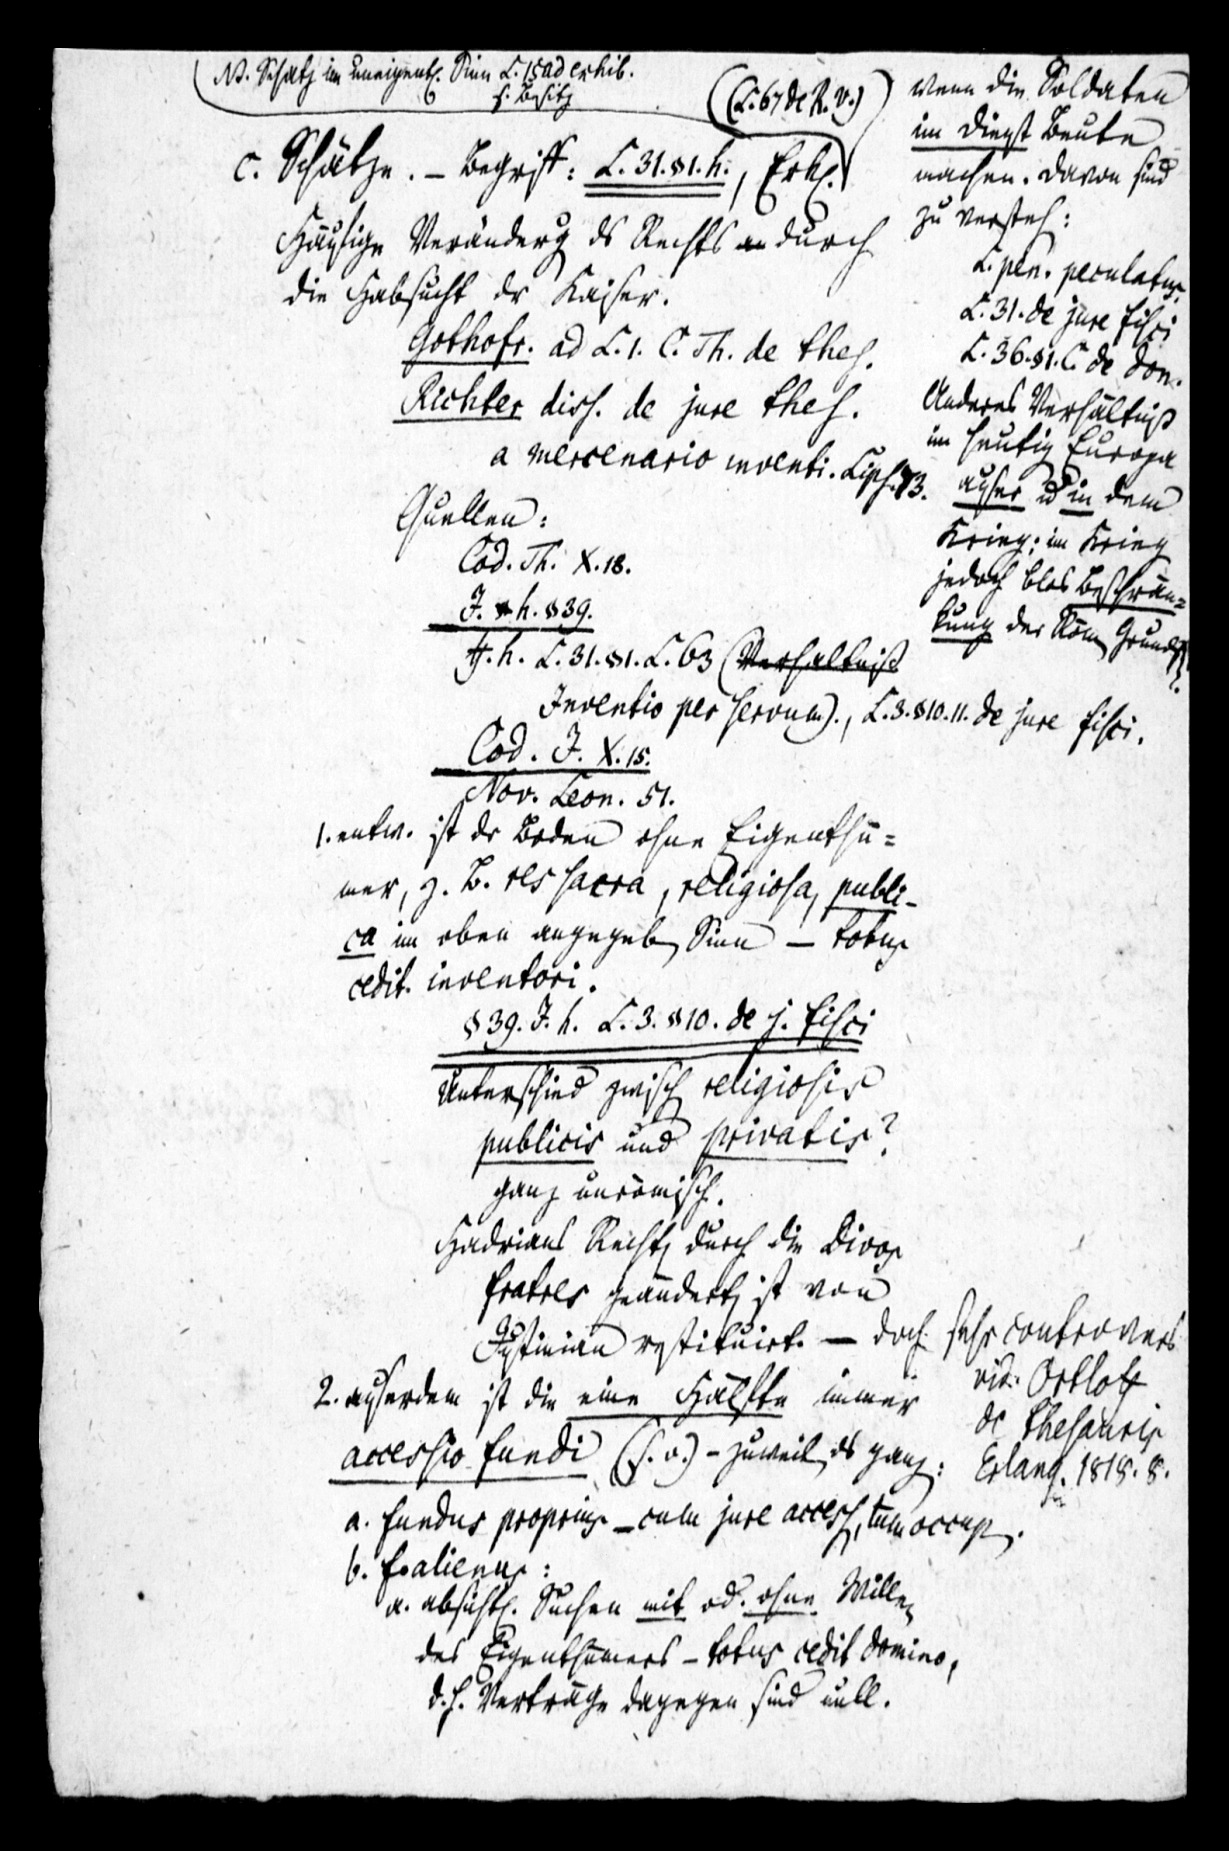 Nb. Schatz im uneigentl. Sinn L. 15 ad exhib.
s. Besitz
(L. 67 de R. V.)
c. Schätze. – Begriff: L. 31. §1. h.,
Häufige Veränderg ds Rechts durch
die Habsucht dr Kaiser.
Gothofr. ad L. 1. C. Th. de thes.
Richter diss. de jure thes.
a mercenario inventi. Lips.
Quellen:
Cod. Th. X. 18.
J. h. §39.
ff. h. L. 31. §1. L. 63 (Verhältniß
Inventio per servum)., L. 3. §10. 11. de jure fisci.
Cod. J. X. 15.
Nov. Leon. 51.
1. entw. ist dr Boden ohne Eigenthü=
mer, z. B. res sacra, religiosa, publi-
ca im oben angegeb. Sinn – totus
cedit inventori.
§39. J. h. L. 3. §10. de j. fisci
Unterschied zwisch religiosis
publicis und privatis?
ganz unrömisch.
Hadrians Recht, durch die Divos
fratres geändert, ist von
Justinian restituirt. – doch sehr controvers
vid. Ortloff
de thesauris
Erlang. 1818. 8.
2. außerdem ist die eine Hälfte immer
accessio fundi (s. o.) – zuweil. ds ganz:
a. fundus proprius – cum jure access., tum occup.
b. f. alienus:
α. absichtl. Suchen mit od. ohne Willen
des Eigenthümers – totus cedit domino,
d. h. Verträge dagegen sind null.
wenn die Soldaten
im Dienst Beute
machen. Davon sind
zu versteh:
L. pen. peculatus.
L. 31. de jure fisci
L. 36. §1. C. de don.
Anderes Verhältniß
im heutig Europa
außer u in dem
Krieg; im Krieg
jedoch blos Beschrän=
kung der Röm. Grunds.